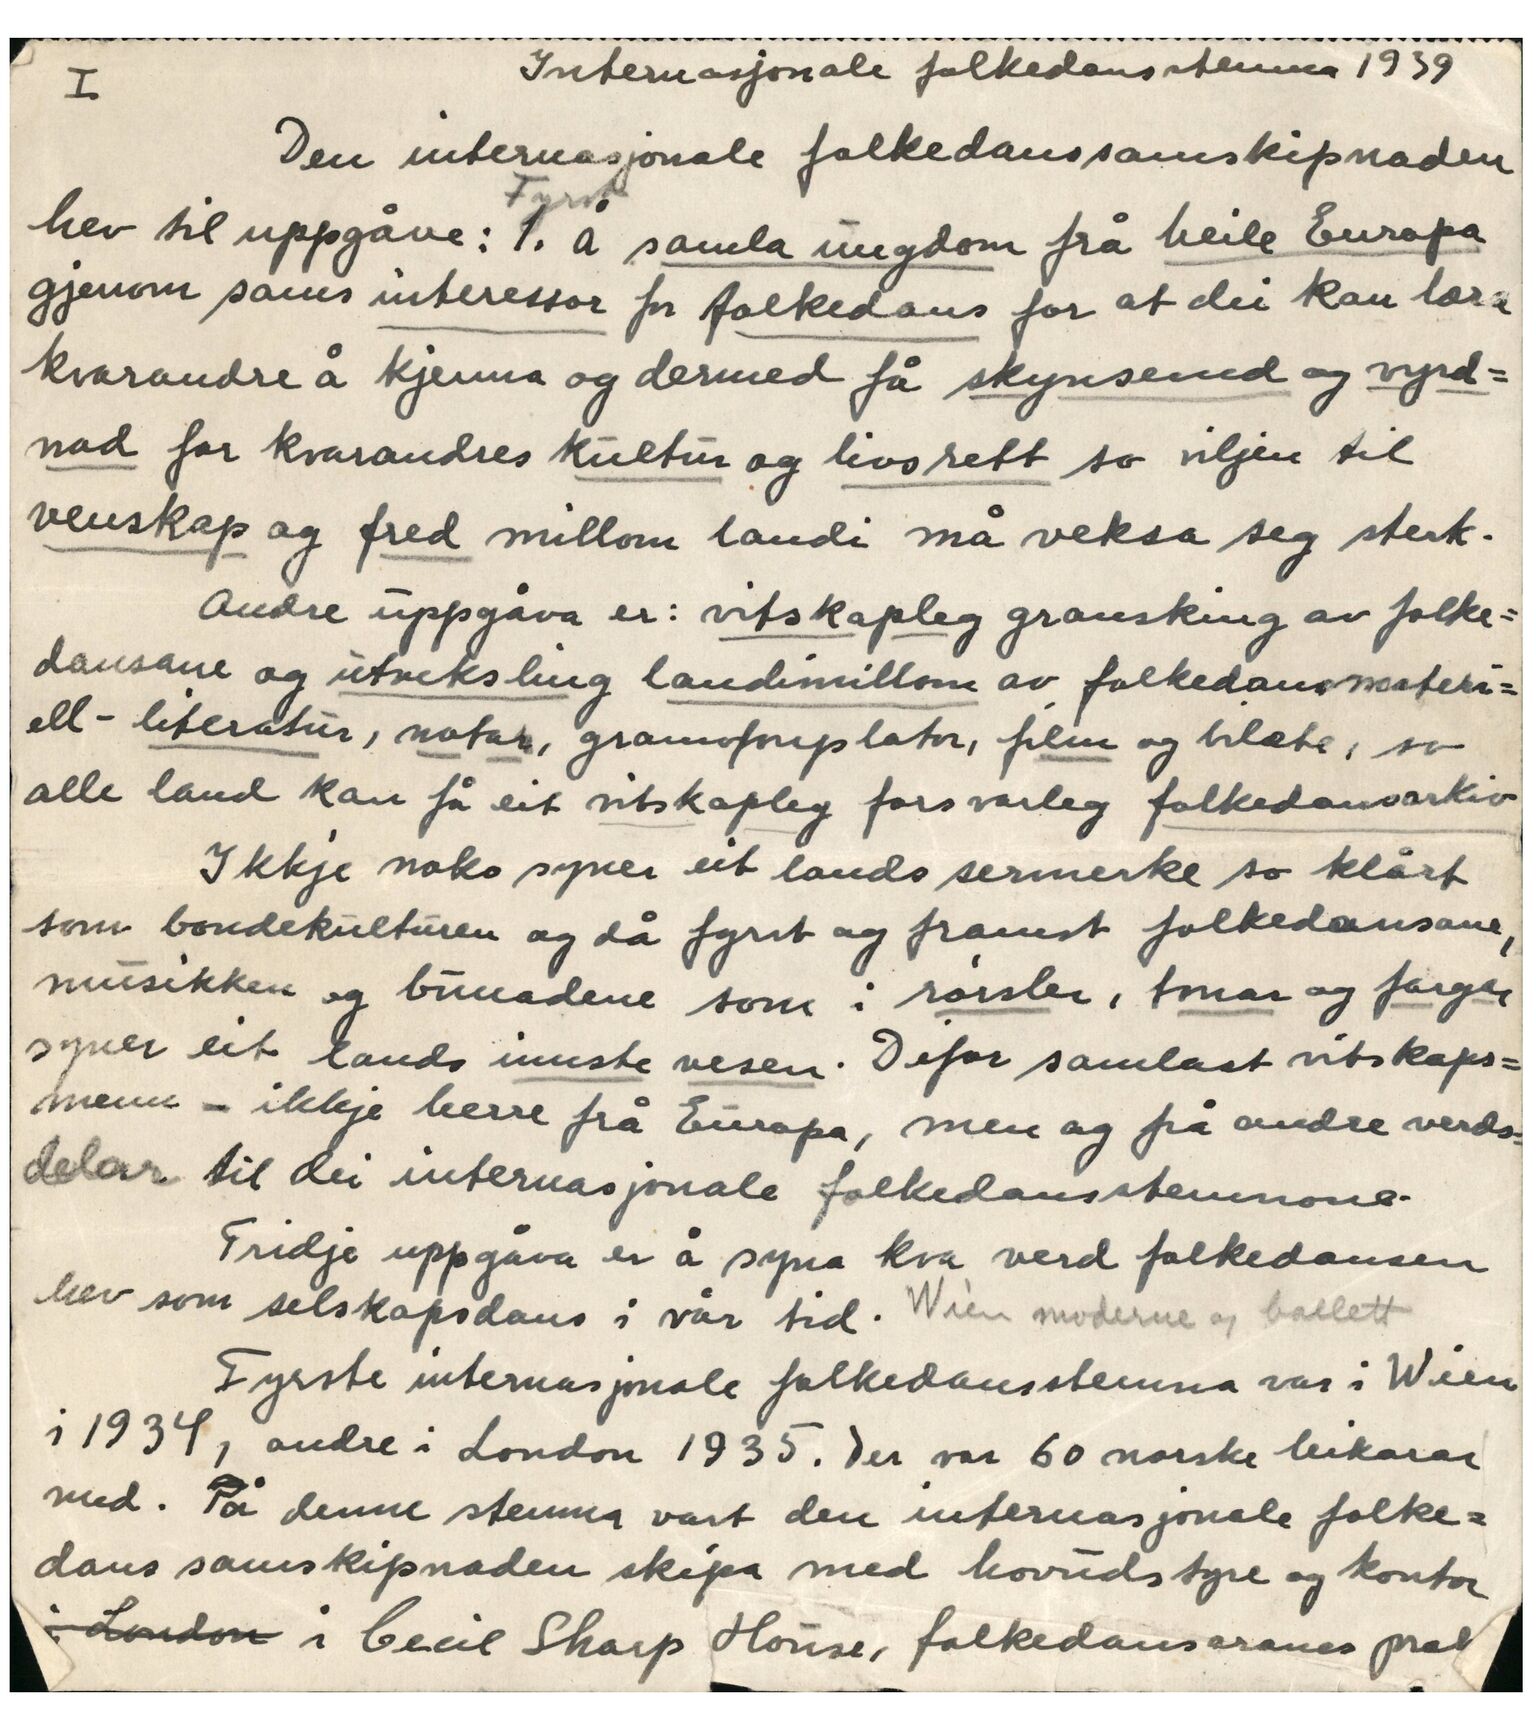 I
Internasjonale folkedansstemna 1939
Den internasjonale folkedanssamskipnaden
Fyrst
hev til uppgåve: 1. å samla ungdom frå heile Europa
gjenom sams interessor for folkedans for at dei kan læra
kvarandre å kjenna og dermed få skynsemd og vyrd=
nad for kvarandres kultur og livsrett so viljen til
venskap og fred millom landi må veksa seg sterk.
Andre uppgåva er: vitskapleg gransking av folke=
dansane og utveksling landimillom av folkedansmateri=
ell - literatur, notar, gramofonplator, film og bilæte, so
alle land kan få eit vitskapleg forsvarleg folkedansarkiv
Ikkje noko syner eit lands sermerke so klårt
som bondekulturen og då fyrst og framst folkedansane,
musikken og bunadene som i rørsler, tonar og fargar
syner eit lands innste vesen. Difor samlast vitskaps=
menn - ikkje berre frå Europa, men og frå andre verds=
delar til dei internasjonale folkedansstemnone.
Tridje uppgåva er å syna kva verd folkedansen
hev som selskapsdans i vår tid. Wien moderne og ballett
Fyrste internasjonale folkedansstemna var i Wien
i 1934, andre i London 1935. Der var 60 norske leikarar
med. På denne stemna vart den internasjonale folke=
dans samskipnaden skipa med hovudstyre og kontor
i London i Cecil Sharp House, folkedansaranes